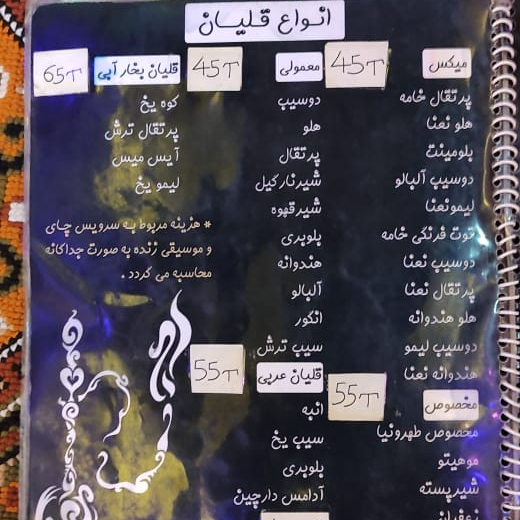 انواع قلیان
میکس
45T
پرتقال خامه
هلو نعنا
بلومینت
دوسیب آلبالو
لیمونعنا
توت فرنگی خامه
دوسیب نعنا
پرتقال نعنا
هلو هندوانه
دوسیب لیمو
هندوانه نعنا
مخصوص
55T
مخصوص طهرونیا
موهیتو
شیرپسته
زعفرانی
معمولی
45T
دوسیب
هلو
پرتقال
شیرنارگیل
شیرقهوه
بلوبری
هندوانه
آلبالو
انگور
سیب ترش
قلیان عربی
55T
انبه
سیب یخ
بلوبری
آدامس دارچین
قلیان بخار آبی
65T
کوه یخ
پرتقال ترش
آیس میس
لیمو یخ
* هزینه مربوط به سرویس چای
و موسیقی زنده به صورت جداگانه
محاسبه می گردد .